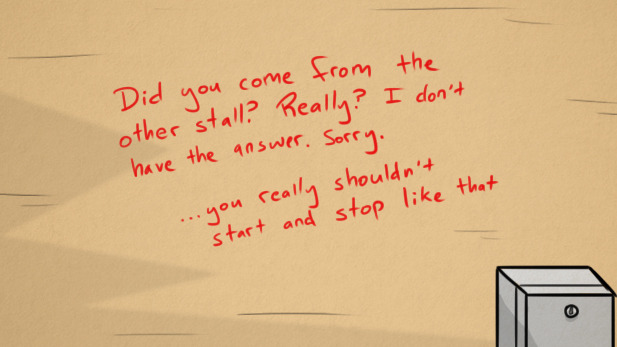 Did you come from the
other stall? Really? I don't
have the answer. Sorry.
...you really shouldn't
start and stop like that